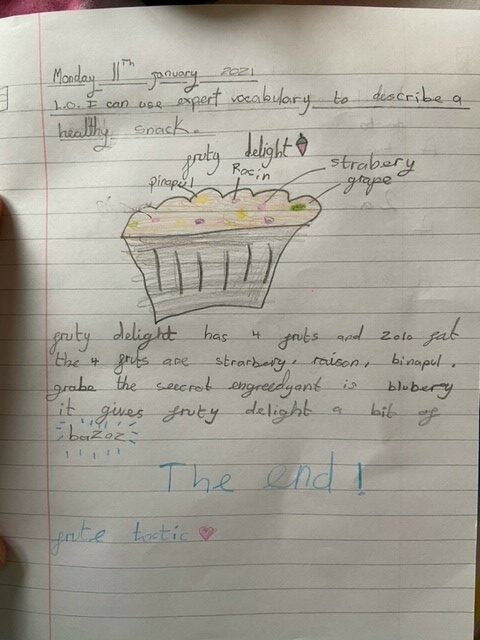 Monday 11Th january 2021
L.O. I can use expert vocabulary to describe a
healthy snack.
fruty delight
Rasin
strabery
pinapul
grape
fruty delight has 4 fruts and zolo fat
the 4 fruts are strarbery, raison, binapul,
grabe the seecrot engreedyant is blubery
it gives fruty delight a bit of
bazoz
The end!
frute tastic